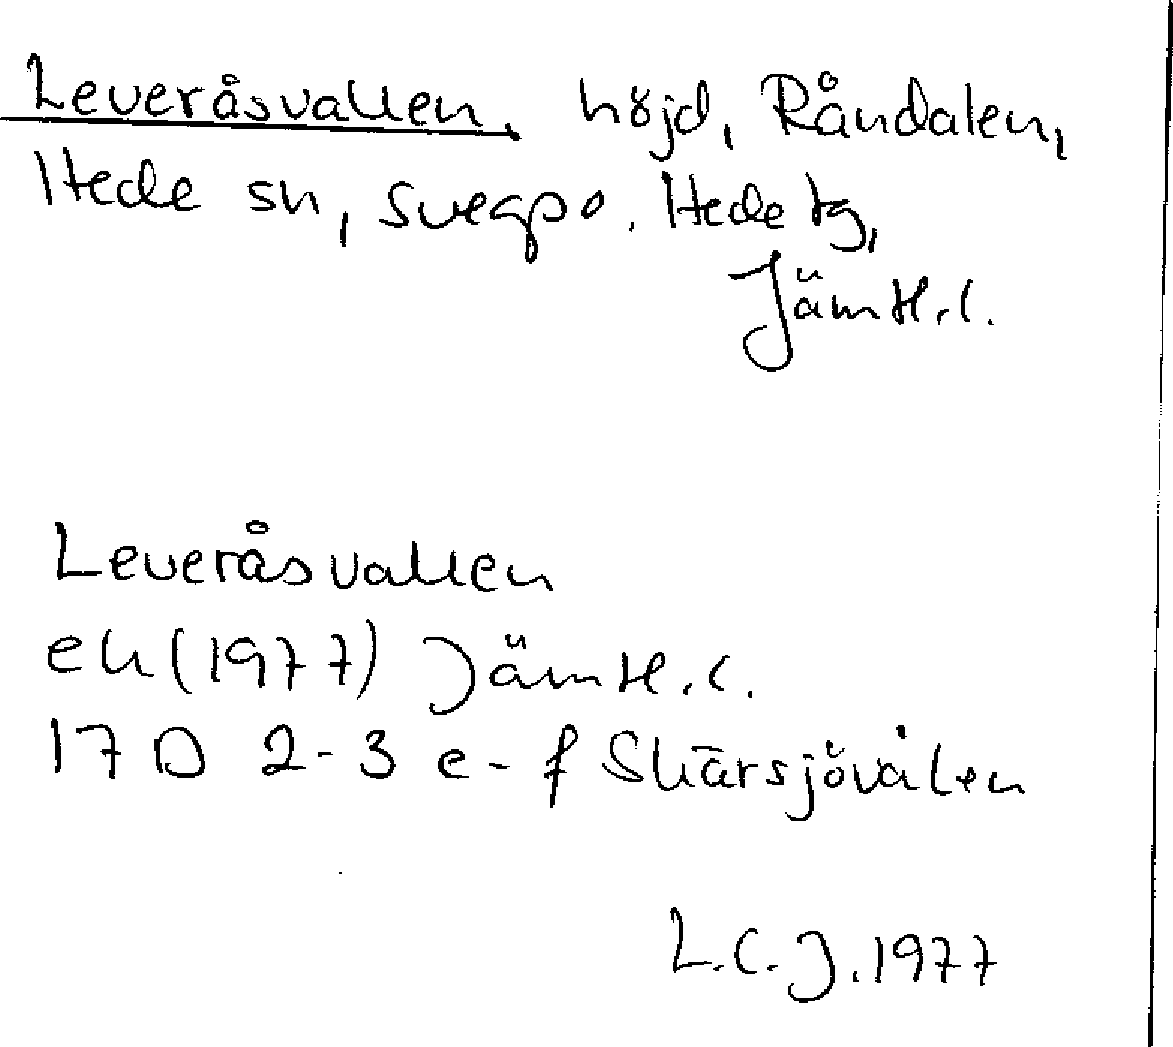 Leveråsvallen, höjd, Råndalen,
Hede sn, Svegpo. Hede tg,
Jämtl.l.
Leveråsvallen
ek(1977) Jämtl.l.
17 D 2-3 e-f Skärsjövålen
L.C.J. 1977